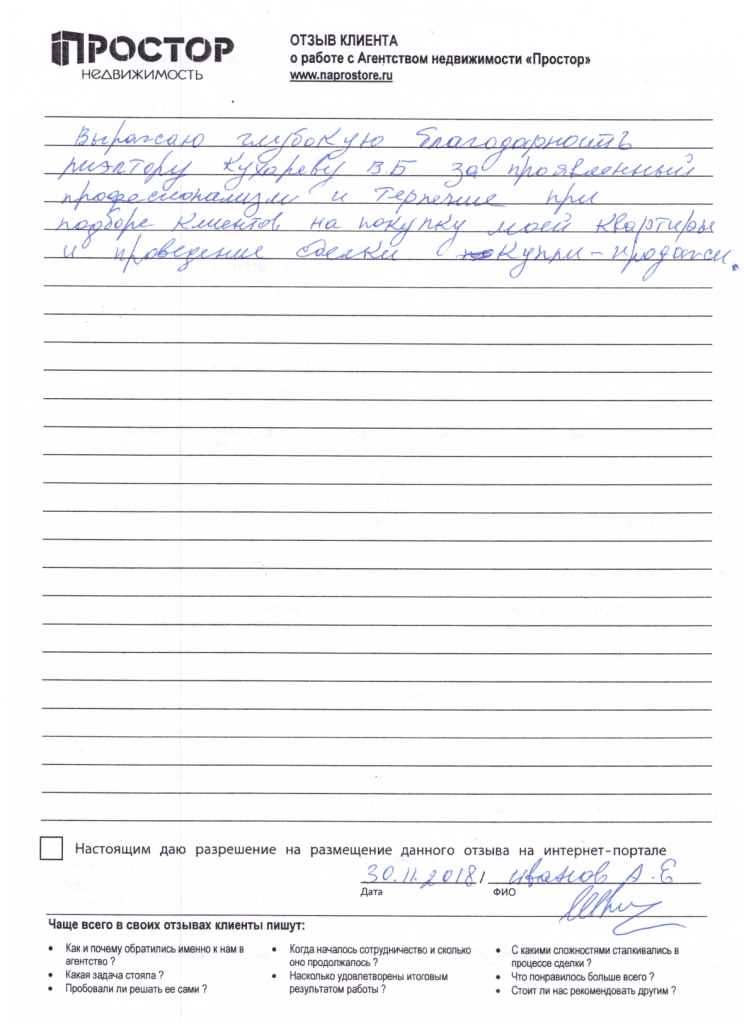 ПРОСТОР
НЕДВИЖИМОСТЬ
ОТЗЫВ КЛИЕНТА
о работе с Агентством недвижимости «Простор»
www.naprostore.ru
Выражаю глубокую благодарность
риэлтору Кухареву В.Б за проявленный
професионализм и терпение при
подборе клиентов на покупку моей квартиры
и проведение сделки купли-продажи.
Настоящим даю разрешение на размещение данного отзыва на интернет-портале
30.11.2018 / Иванов А.Е
Дата ФИО
Чаще всего в своих отзывах клиенты пишут:
• Как и почему обратились именно к нам в агентство ?
• Какая задача стояла ?
• Пробовали ли решать ее сами ?
• Когда началось сотрудничество и сколько оно продолжалось ?
• Насколько удовлетворены итоговым результатом работы ?
• С какими сложностями сталкивались в процессе сделки ?
• Что понравилось больше всего ?
• Стоит ли нас рекомендовать другим ?